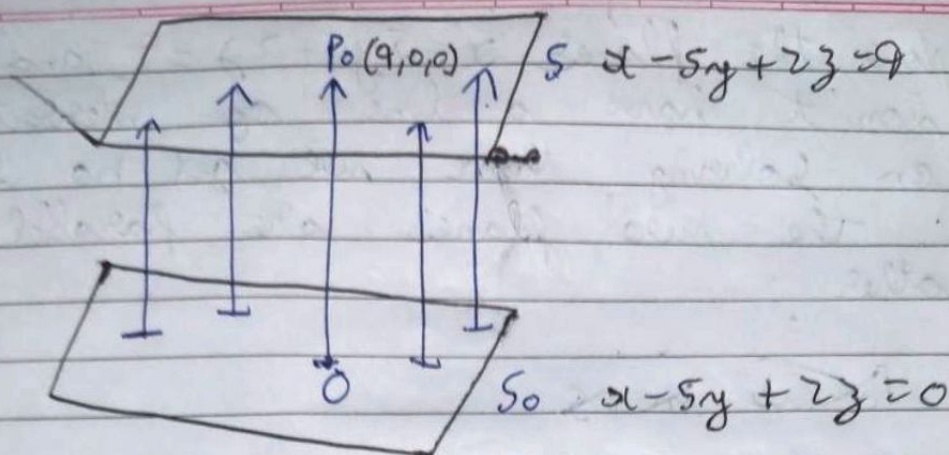 P0 (9,0,0) S x - 5y + 2z = 9
O S0 x - 5y + 2z = 0